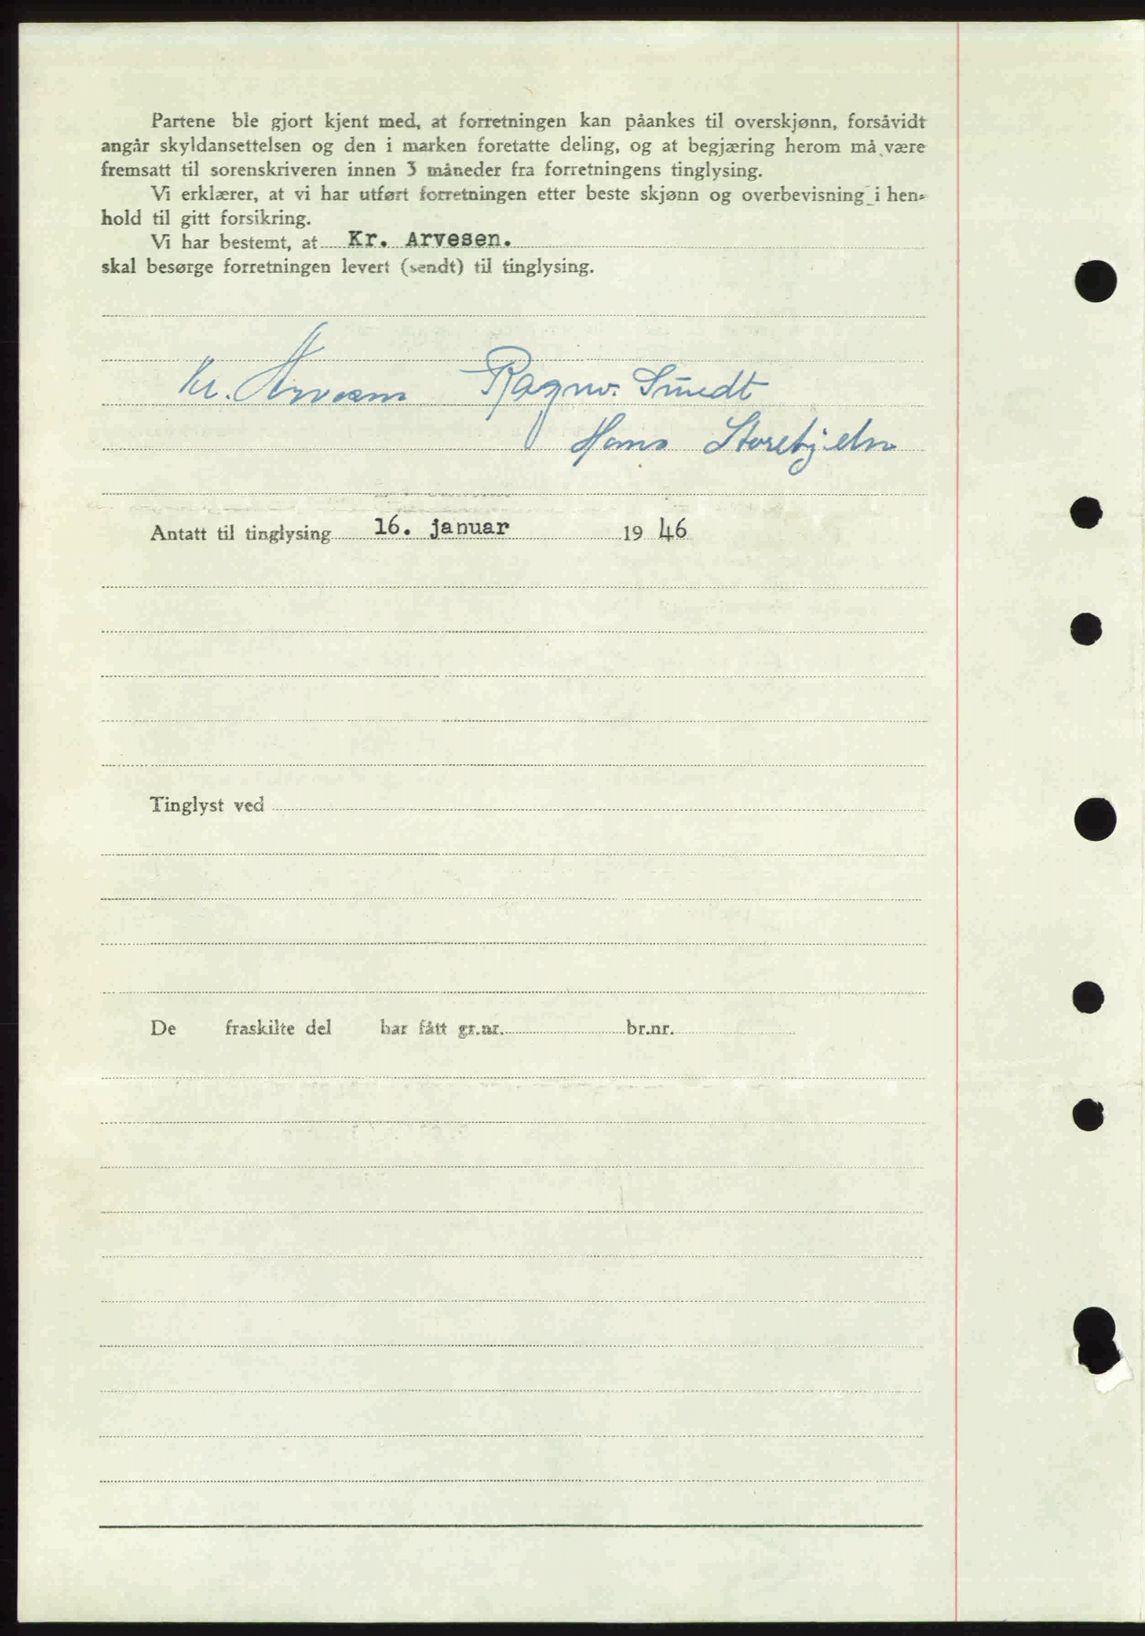 Partene ble gjort kjent med, at forretningen kan påankes til overskjønn, forsåvidt
angår skyldansettelsen og den i marken foretatte deling, og at begjæring herom må være
fremsatt til sorenskriveren innen 3 måneder fra forretningens tinglysing.
Vi erklærer, at vi har utført forretningen etter beste skjønn og overbevisning i hen-
hold til gitt forsikring.
Vi har bestemt, at Kr. Arvesen.
skal besørge forretningen levert (sendt) til tinglysing.
Kr. Arvesen Ragnv. Smedt
Hans Storehjelm
Antatt til tinglysing 16. januar 19 46
Tinglyst ved
De fraskilte del har fått gr.nr. br.nr.